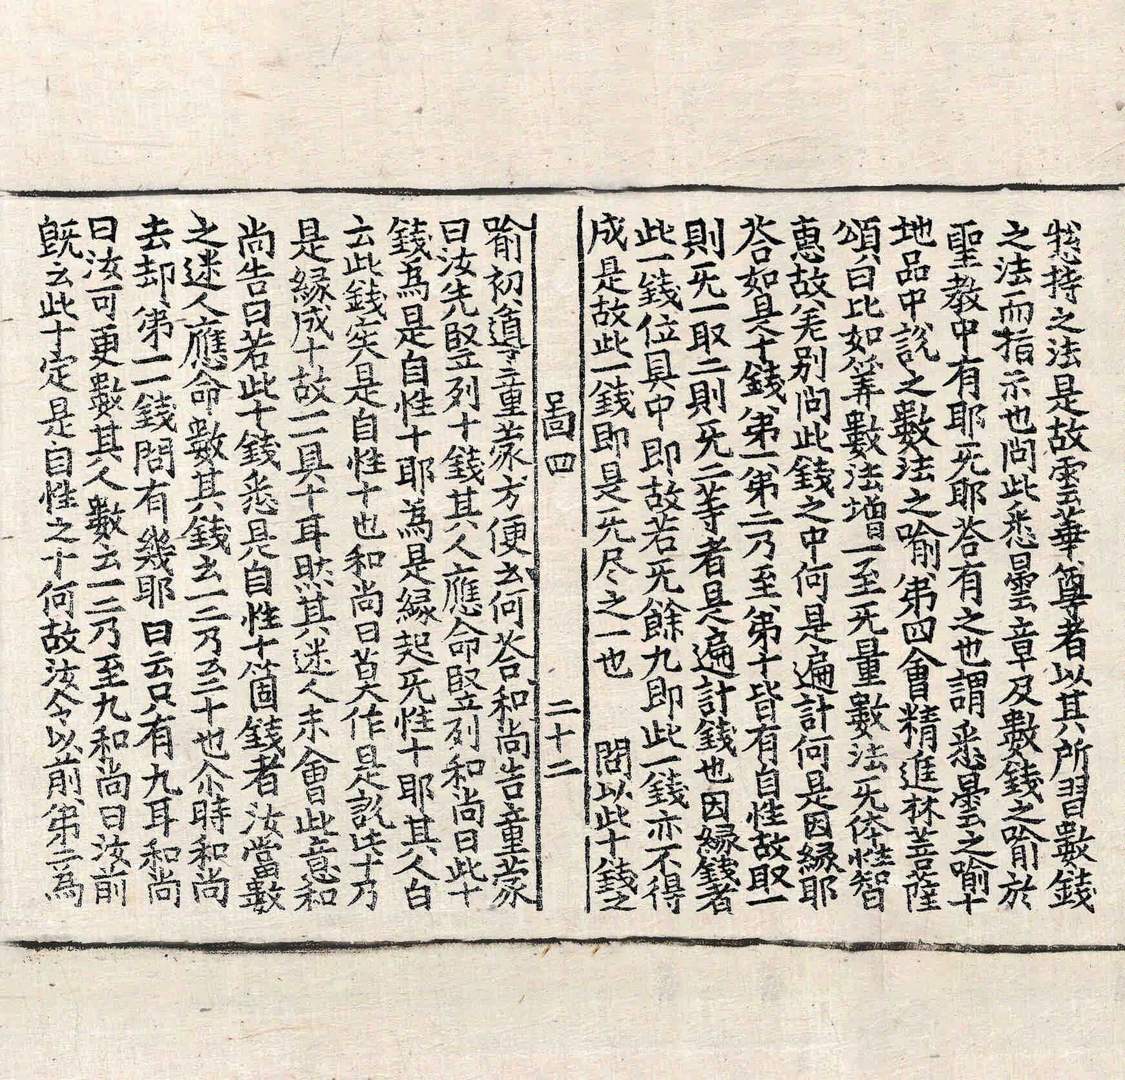 惣持之法是故雲華尊者以其所習數錢
之法而指示也問此悉曇章及數錢之喻於
聖教中有耶旡耶荅有之也謂悉曇之喻十
地品中說之數法之喻第四會精進林菩薩
頌曰比如筭數法增一至旡量數法旡体性智
惠故差別問此錢之中何是遍計何是因緣耶
荅如具十錢第一第二乃至第十皆有自性故取一
則旡一取二則旡二等者是遍計錢也因緣錢者
此一錢位具中即故若旡餘九即此一錢亦不得
成是故此一錢即是旡尽之一也 問以此十錢之
啚四 二十二
喻初導童蒙方便云何荅和尚告童蒙
曰汝先竪列十錢其人應命竪列和尚曰此十
錢爲是自性十耶爲是緣起旡性十耶其人白
云此錢实是自性十也和尚曰莫作是說此十乃
是緣成十故一一具十耳然其迷人未會此意和
尚告曰若此十錢悉是自性十箇錢者汝當數
之迷人應命數其錢云一二乃至十也尒時和尚
去却第一一錢問有幾耶 曰云只有九耳和尚
曰汝可更數其人數云一二乃至九和尚曰汝前
旣云此十定是自性之十何故汝今以前第二爲